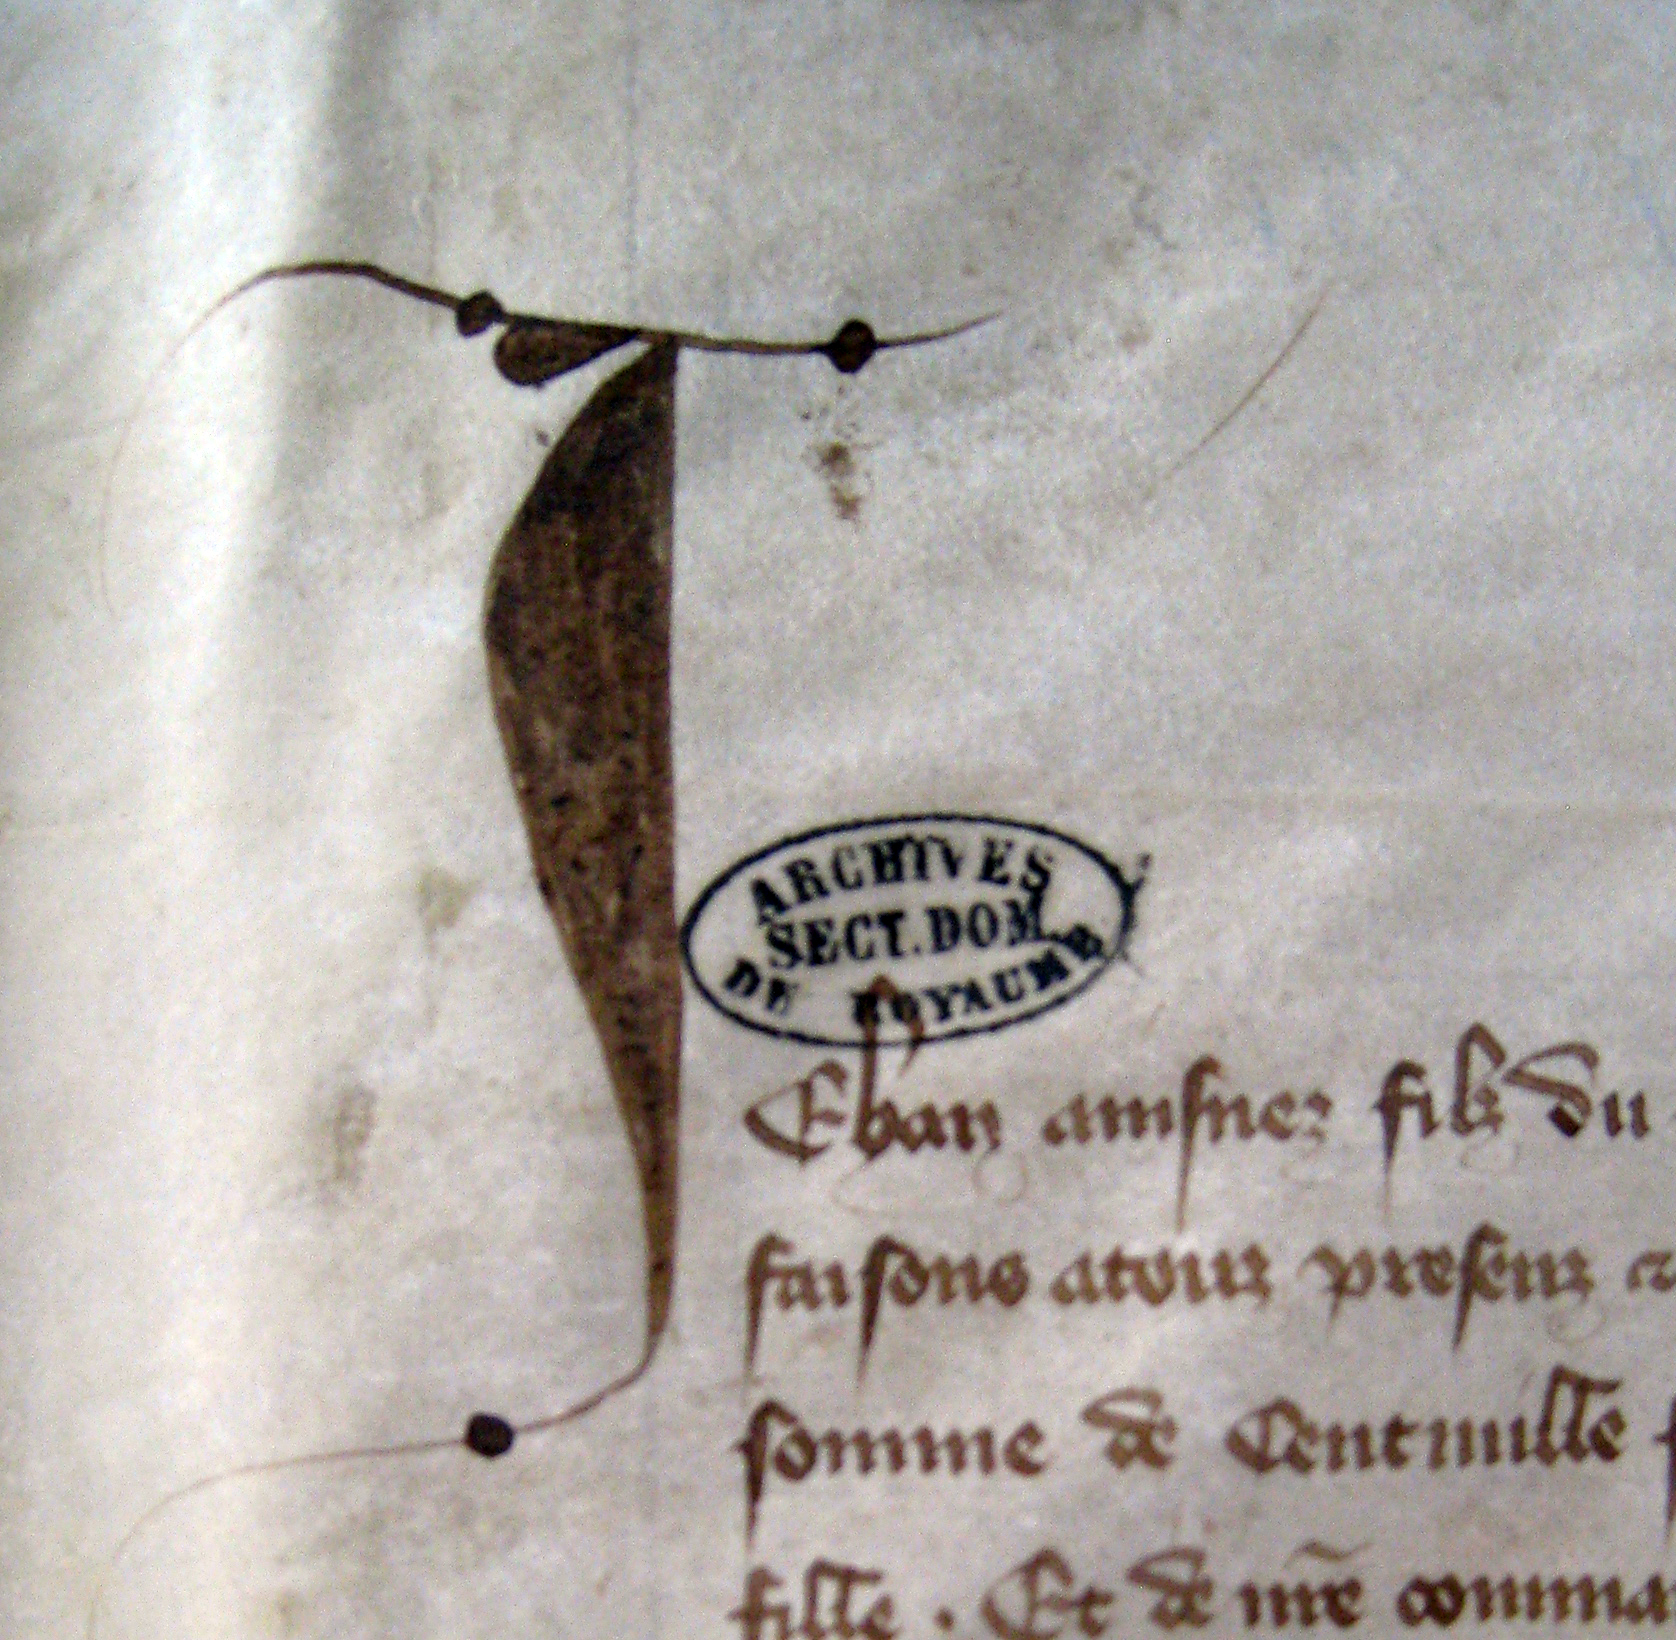 ARCHIVES
SECT. DOM.
DU ROYAUME
J Ehan ainsnez filz du
faisons a touz presenz
somme de Cent mille
fille . Et de nr̃e comma